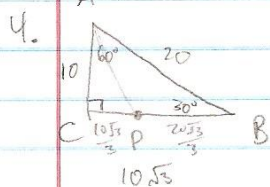 4.
A
60°
10
20
30°
C
10√3/3
P
20√3/3
B
10√3